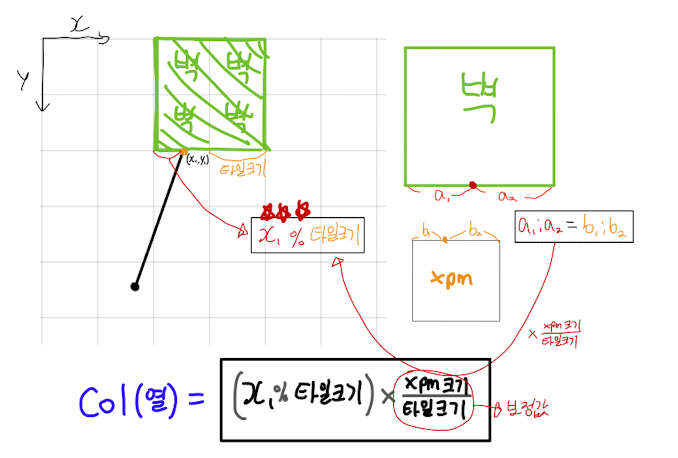 x
y
벽 벽
벽 벽
벽
(x₁,y₁)
타일크기
a₁ a₂
x₁ % 타일크기
b₁ b₂
a₁:a₂ = b₁:b₂
xpm
× xpm크기/타일크기
Col(열) = (x₁% 타일크기) × xpm크기/타일크기
보정값